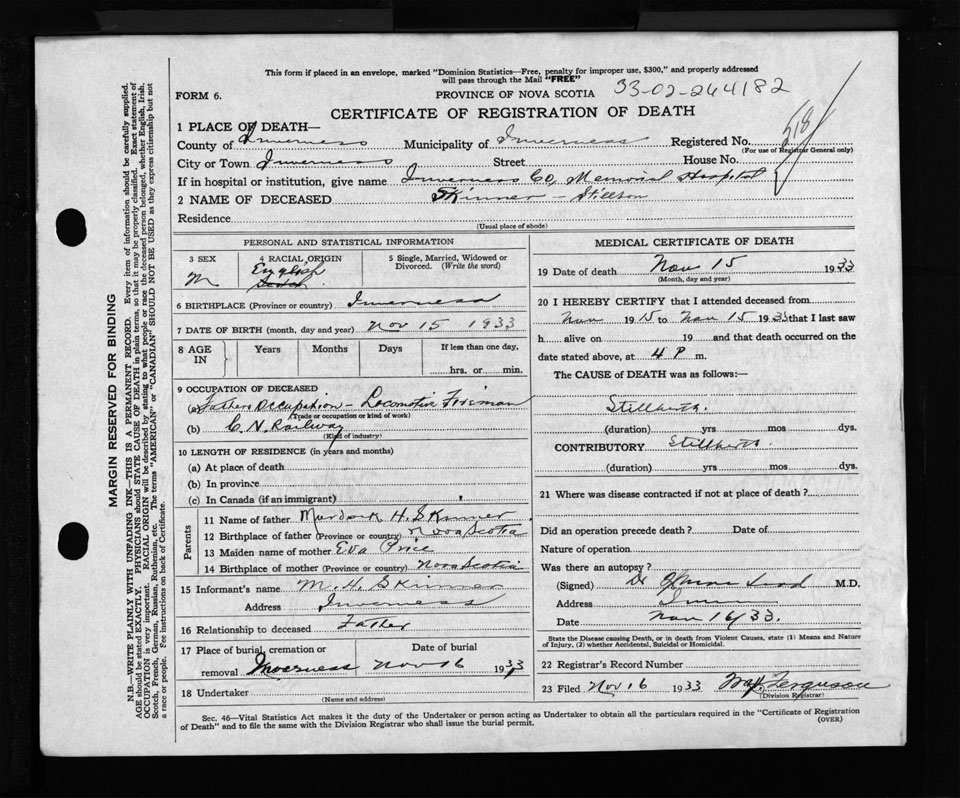 This form if placed in an envelope, marked "Dominion Statistics—Free, penalty for improper use, $300," and properly addressed
will pass through the Mail "FREE"
FORM 6.
PROVINCE OF NOVA SCOTIA 33-02-264182
CERTIFICATE OF REGISTRATION OF DEATH
1 PLACE OF DEATH—
County of Inverness Municipality of Inverness Registered No. 518
(For use of Registrar General only)
City or Town Inverness Street House No.
If in hospital or institution, give name Inverness Co, Memorial Hospital
2 NAME OF DECEASED Skinner — Stillborn
Residence
(Usual place of abode)
PERSONAL AND STATISTICAL INFORMATION
3 SEX
M
4 RACIAL ORIGIN
English
5 Single, Married, Widowed or
Divorced. (Write the word)
6 BIRTHPLACE (Province or country) Inverness
7 DATE OF BIRTH (month, day and year) Nov 15 1933
8 AGE
IN
Years Months Days If less than one day,
hrs. or min.
9 OCCUPATION OF DECEASED
(a) Fathers Occupation — Locomotive Fireman
(Trade or occupation or kind of work)
(b) C. N. Railway
(Kind of industry)
10 LENGTH OF RESIDENCE (in years and months)
(a) At place of death
(b) In province
(c) In Canada (if an immigrant)
Parents
11 Name of father Murdock H. Skinner
12 Birthplace of father (Province or country) Nova Scotia
13 Maiden name of mother Eva Price
14 Birthplace of mother (Province or country) Nova Scotia
15 Informant's name M. H. Skinner
Address Inverness
16 Relationship to deceased Father
17 Place of burial, cremation or Date of burial
removal Inverness Nov 16 1933
18 Undertaker
(Name and address)
MEDICAL CERTIFICATE OF DEATH
19 Date of death Nov 15 1933
(Month, day and year)
20 I HEREBY CERTIFY that I attended deceased from
Nov 1915 to Nov 15 1933 that I last saw
h alive on 19 and that death occurred on the
date stated above, at 4 P m.
The CAUSE of DEATH was as follows:—
Stillbirth.
(duration) yrs mos dys.
CONTRIBUTORY Stillbirth
(duration) yrs mos dys.
21 Where was disease contracted if not at place of death?
Did an operation precede death? Date of
Nature of operation
Was there an autopsy?
(Signed) Dr M.D.
Address
Date Nov 16/33.
State the Disease causing Death, or in death from Violent Causes, state (1) Means and Nature
of Injury, (2) whether Accidental, Suicidal or Homicidal.
22 Registrar's Record Number
23 Filed Nov 16 1933 Ferguson
(Division Registrar)
Sec. 46—Vital Statistics Act makes it the duty of the Undertaker or person acting as Undertaker to obtain all the particulars required in the "Certificate of Registration
of Death" and to file the same with the Division Registrar who shall issue the burial permit.
(OVER)
MARGIN RESERVED FOR BINDING
N.B.—WRITE PLAINLY WITH UNFADING INK—THIS IS A PERMANENT RECORD. Every item of information should be carefully supplied.
AGE should be stated EXACTLY. PHYSICIANS should STATE CAUSE OF DEATH in plain terms, so that it may be properly classified. Exact statement of
OCCUPATION is very important. RACIAL ORIGIN will be described by stating to what people or race the deceased person belonged, whether English, Irish,
Scotch, French, German, Russian, Ruthenian, etc. The terms "AMERICAN" or "CANADIAN" SHOULD NOT BE USED as they express citizenship but not
a race or people. Fee instructions on back of Certificate.